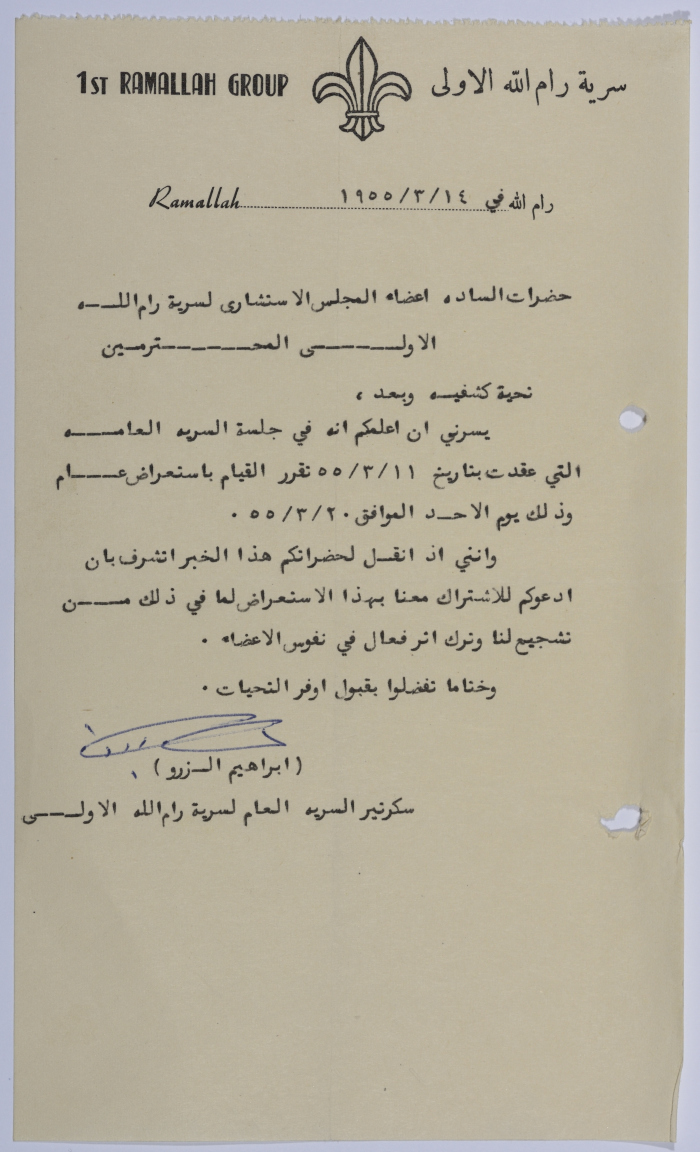 1ST RAMALLAH GROUP سرية رام الله الاولى
Ramallah رام الله في ١٩٥٥/٣/١٤
حضرات الساده اعضاء المجلس الاستشارى لسرية رام اللـــه
الاولــــــى المحــــــترمـين
تحية كشفيـه وبعد ،
يسرني ان اعلمكم انه في جلسة السريه العامـــه
التي عقدت بتاريخ ٥٥/٣/١١ تقرر القيام باستعراض عـــام
وذلك يوم الاحـد الموافق ٥٥/٣/٢٠ ٠
وانني اذ انقـل لحضراتكم هذا الخبر اتشرف بان
ادعوكم للاشتراك معنا بهذا الاستعراض لما في ذلك مــن
تشجيع لنا وترك اثر فعال في نفوس الاعضاء ٠
وختاما تفضلوا بقبول اوفر التحيات ٠
( ابراهيم الـزرو )
سكرتير السريه العام لسرية رام الله الاولــى